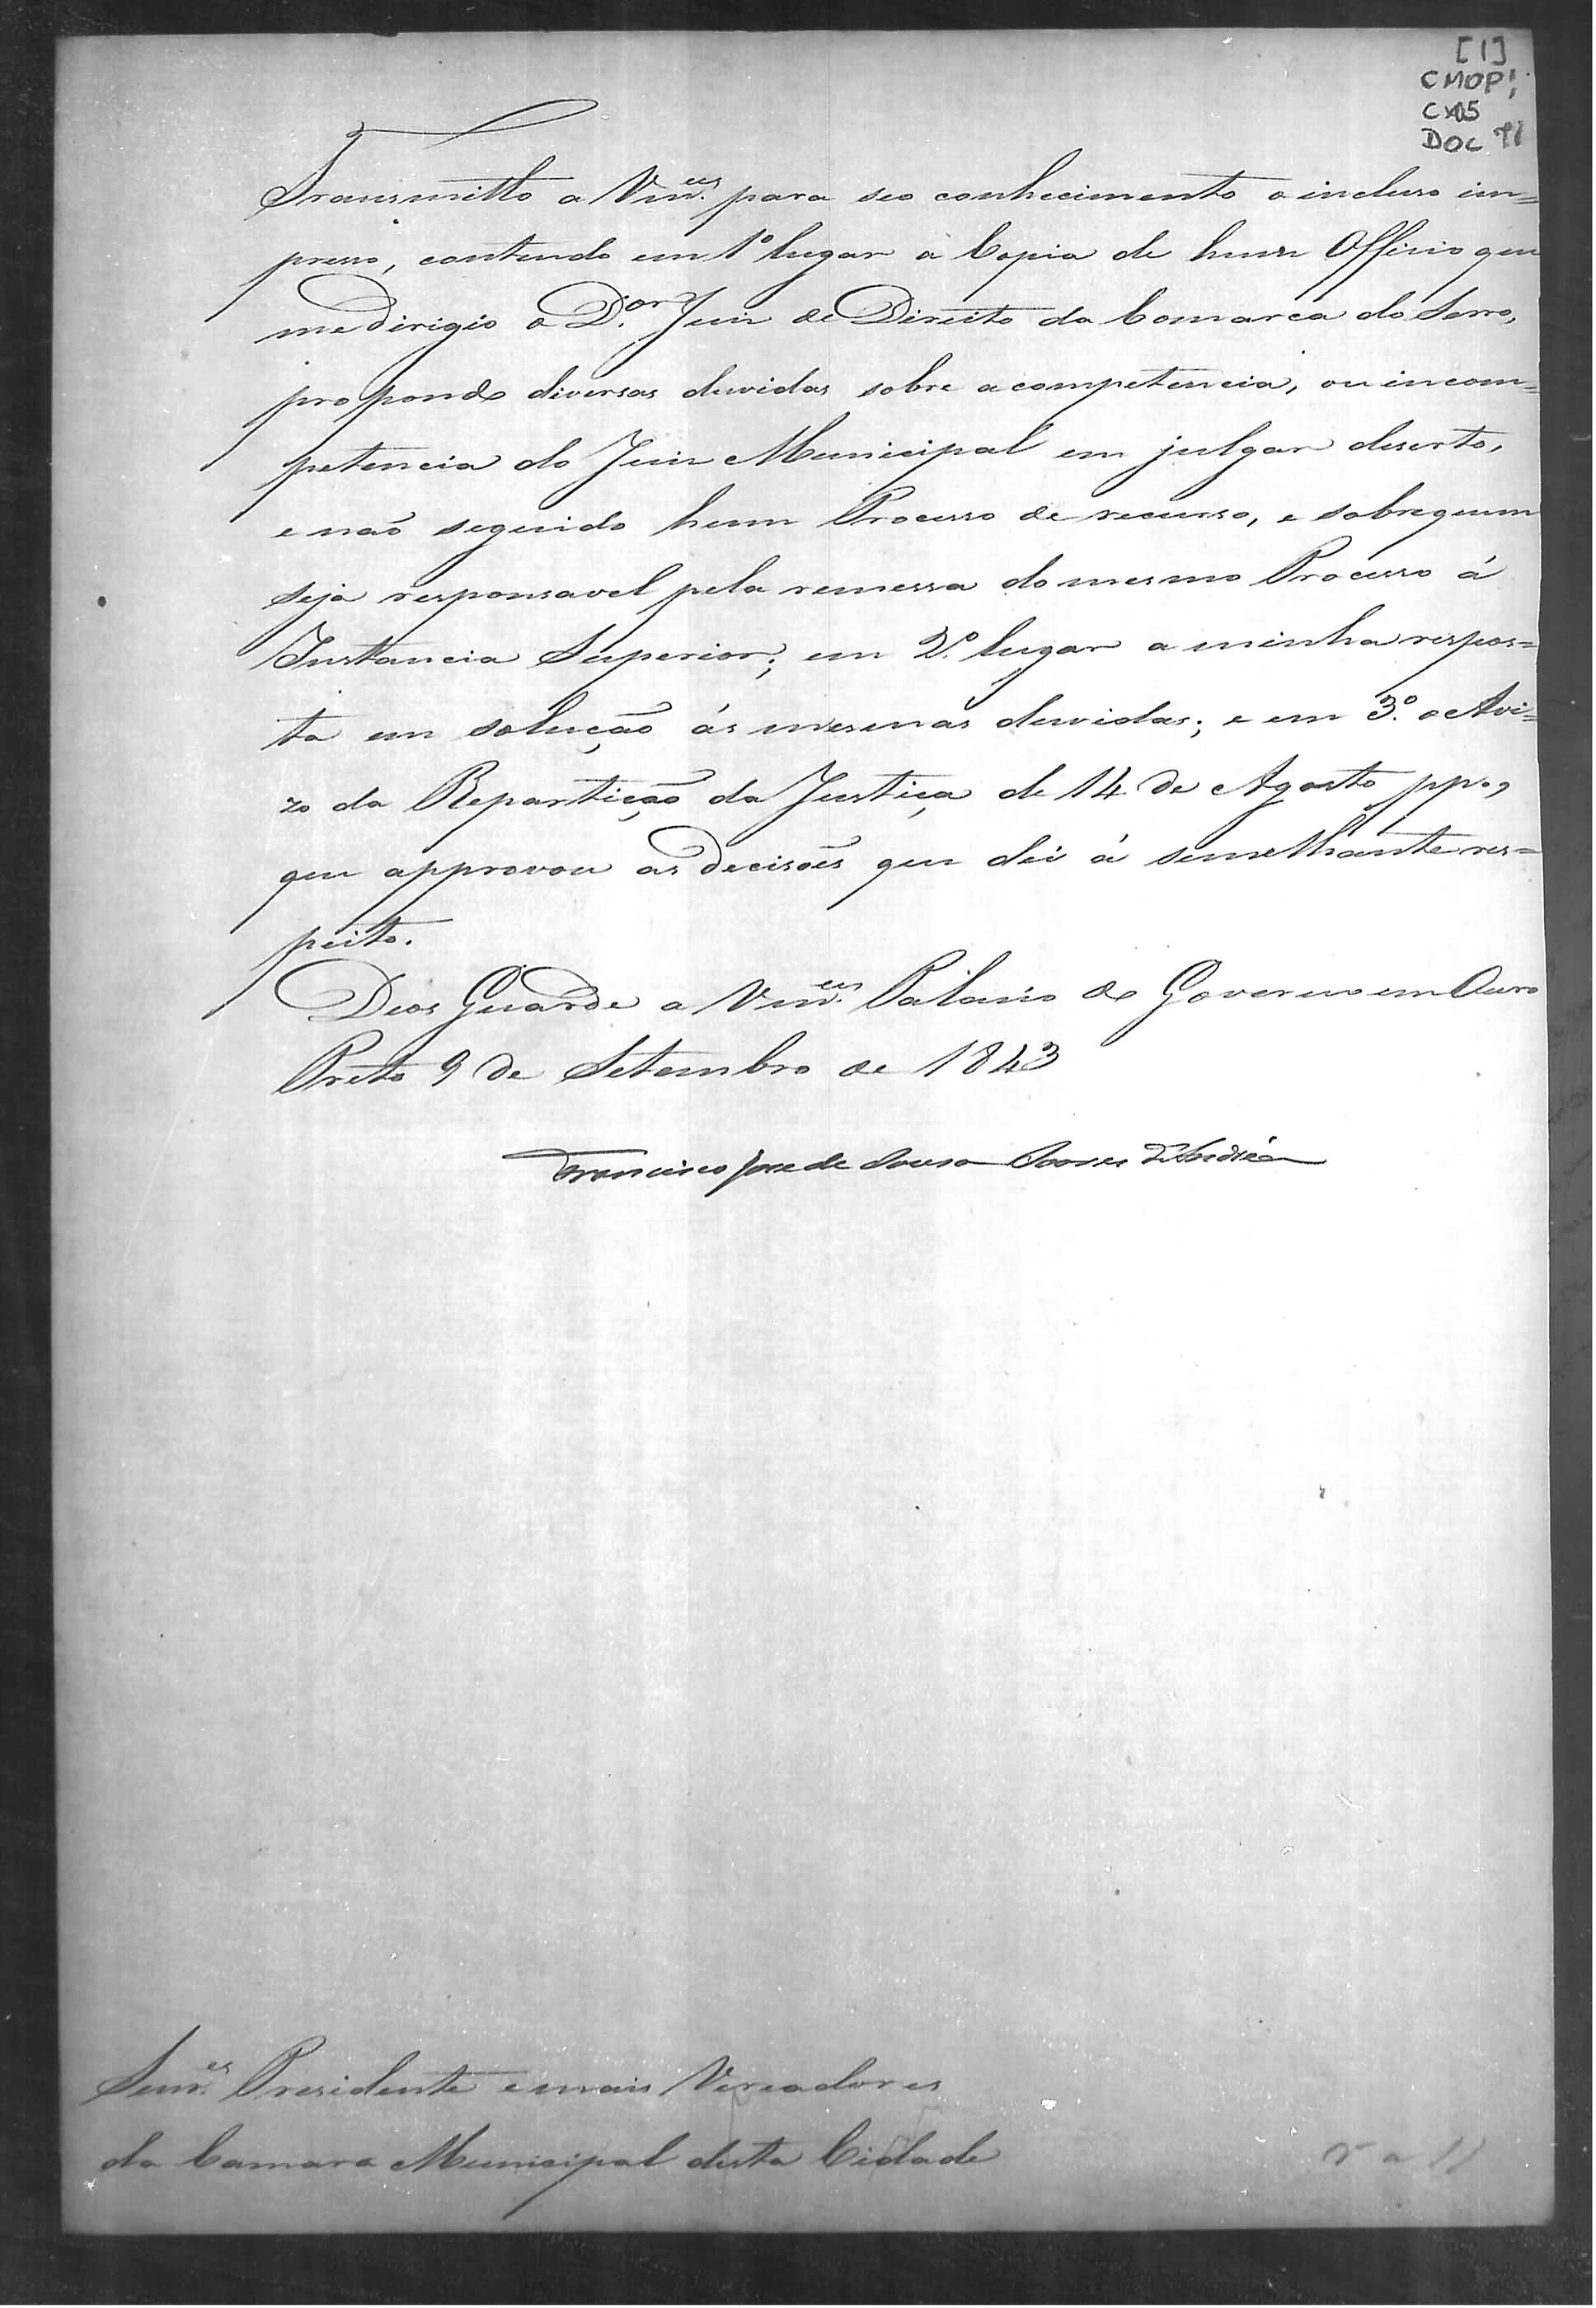 [1]
CMOP
CX05
DOC 71
Transmitto a Vm.ces para seo conhecimento o incluso im=
presso, contendo em 1º lugar a Copia de hum Officio que
me dirigio o D.or Juiz de Direito da Comarca do Serro,
propondo diversas duvidas sobre a competencia, ou incom=
petencia do Juiz Municipal em julgar deserto,
e não seguido hum Processo de recurso, e sobre quem
seja responsavel pela remessa do mesmo Processo á
Instancia Superior; em 2.º lugar a minha respos=
ta em solução ás mesmas duvidas; e em 3.º o Avi=
zo da Repartição da Justiça de 14 de Agosto pp.o,
que approvou as decisões que dei á semelhante res=
peito.
Deos Guarde a Vm.ces Palacio do Governo em Ouro
Preto 9 de Setembro de 1843
Francisco José de Souza Soares d'Andréa
Senr.es Presidente e mais Vereadores
da Camara Municipal desta Cidade